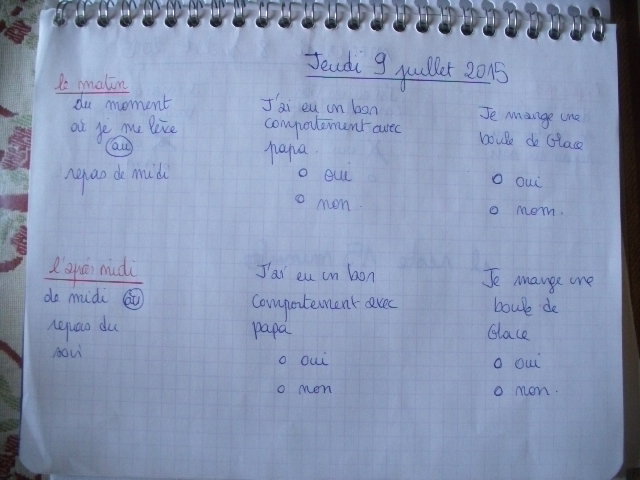 Jeudi 9 juillet 2015
le matin
du moment
où je me lève
au
repas de midi
J'ai eu un bon
comportement avec
papa.
o oui
o non.
Je mange une
boule de Glace
o oui
o nom.
l'après midi
de midi au
repas du
soir
J'ai eu un bon
comportement avec
papa
o oui
o non
Je mange une
boule de
Glace
o oui
o non.